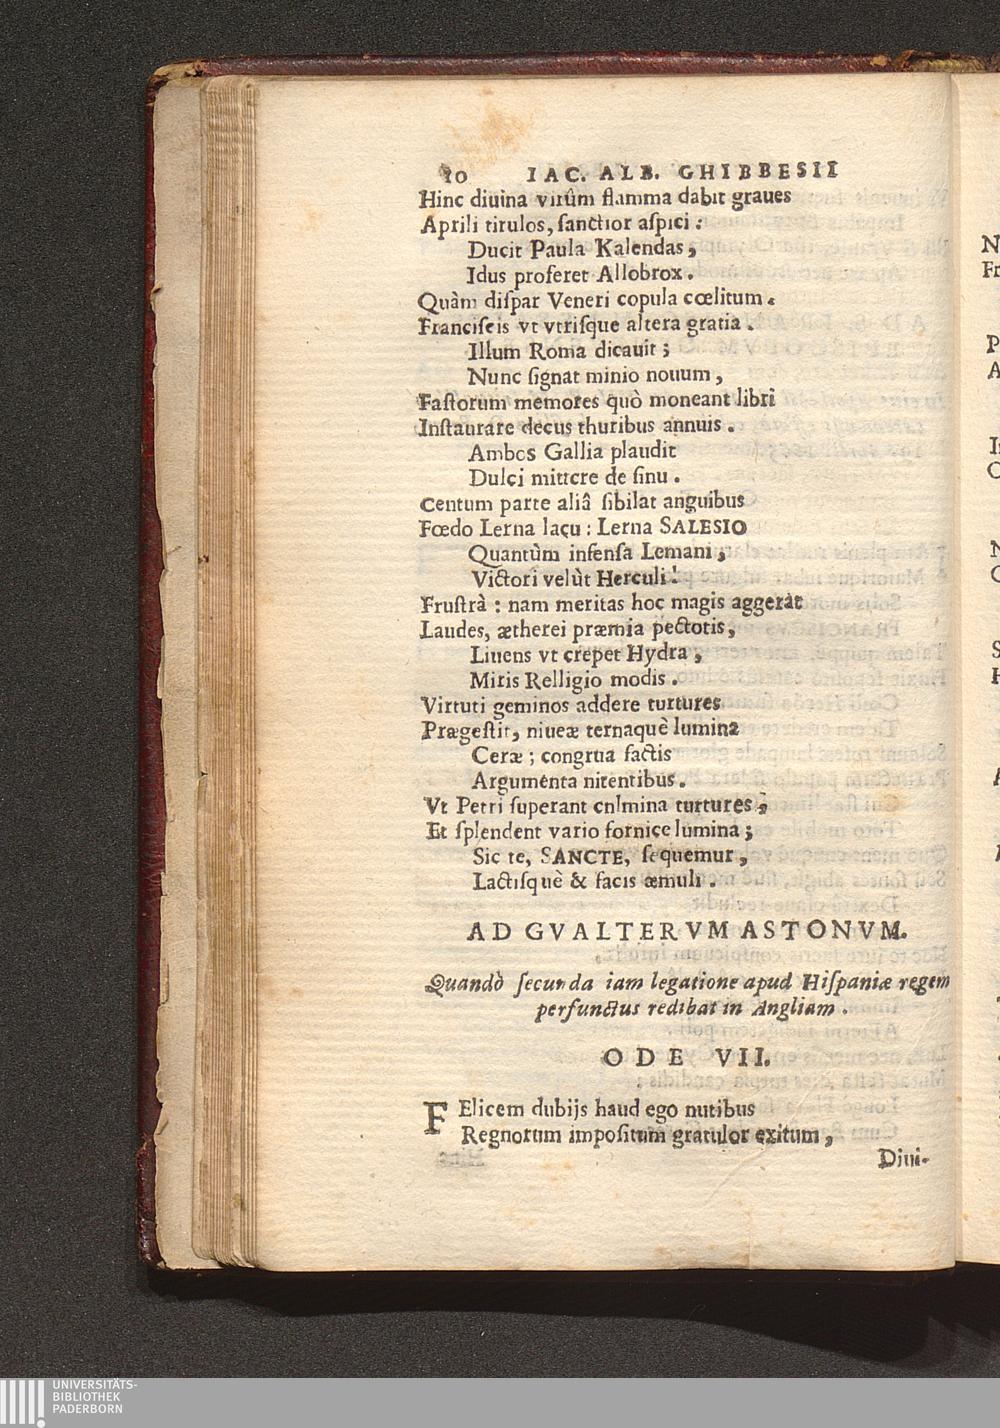 10 IAC. ALB. GHIBBESII
Hinc diuina virûm flamma dabit graues
Aprili titulos, ſanctior aſpici :
Ducit Paula Kalendas,
Idus proferet Allobrox.
Quàm diſpar Veneri copula cœlitum.
Franciſcis vt vtriſque altera gratia.
Illum Roma dicauit ;
Nunc ſignat minio nouum,
Faſtorum memores quò moneant libri
Inſtaurare decus thuribus annuis.
Ambos Gallia plaudit
Dulci mittere de ſinu.
Centum parte aliâ ſibilat anguibus
Fœdo Lerna lacu : Lerna SALESIO
Quantùm infenſa Lemani,
Victori velùt Herculi!
Fruſtrà : nam meritas hoc magis aggerat
Laudes, ætherei præmia pectoris,
Liuens vt crepet Hydra,
Miris Relligio modis.
Virtuti geminos addere turtures
Prægeſtit, niueæ ternaquè lumina
Ceræ ; congrua factis
Argumenta nitentibus.
Vt Petri ſuperant cnlmina turtures,
Et ſplendent vario fornice lumina ;
Sic te, SANCTE, ſequemur,
Lactiſquè & facis æmuli.
AD GVALTERVM ASTONVM.
Quandò ſecunda iam legatione apud Hiſpaniæ regem
perfunctus redibat in Angliam.
ODE VII.
FElicem dubijs haud ego nutibus
Regnorum impoſitum gratulor exitum,
Diui-
UNIVERSITÄTS-
BIBLIOTHEK
PADERBORN